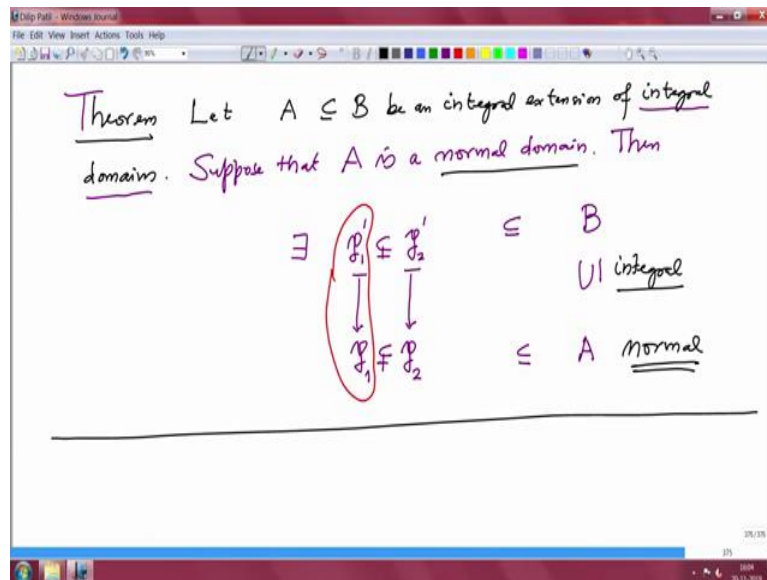 Dilip Patil - Windows Journal
File Edit View Insert Actions Tools Help
Theorem Let A ⊆ B be an integral extension of integral
domains. Suppose that A is a normal domain. Then
∃ 𝔭₁' ⊊ 𝔭₂' ⊆ B
∪| integral
𝔭₁ ⊊ 𝔭₂ ⊆ A normal
375/375
375
16:04
20-11-2018